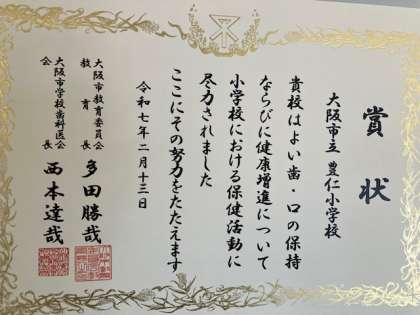 賞状
大阪市立 豊仁小学校
貴校はよい歯・口の保持
ならびに健康増進について
小学校における保健活動に
尽力されました
ここにその努力をたたえます
令和七年二月十三日
大阪市教育委員会
教育長 多田勝哉
大阪市学校歯科医会
会長 西本達哉